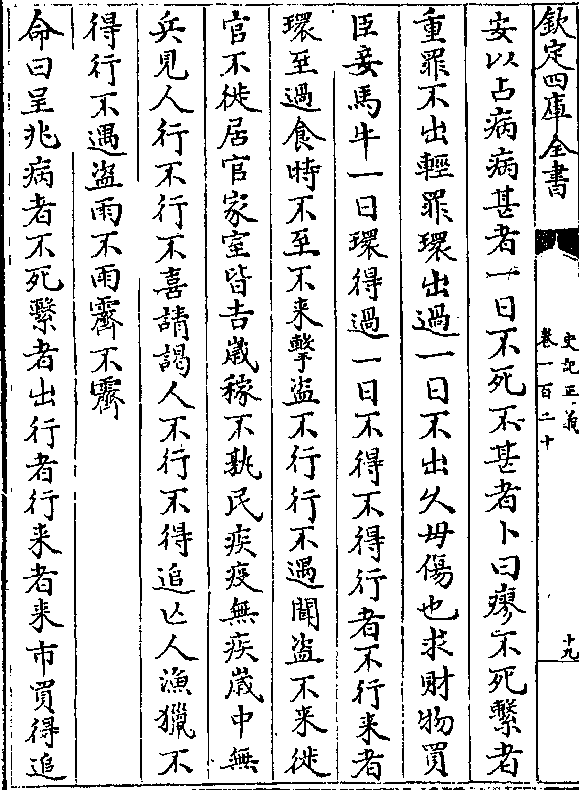 欽定四庫全書
史記正義
卷一百二十
十九
安以占病病甚者一日不死不甚者卜日瘳不死繫者
重罪不出輕罪環出過一日不出久毋傷也求財物買
臣妾馬牛一日環得過一日不得不得行者不行來者
環至過食時不至不来擊盗不行行不遇聞盗不来徙
官不徙居官家室皆吉歲稼不孰民疾疫無疾歲中無
兵見人行不行不喜請謁人不行不得追亾人漁獵不
得行不遇盗雨不雨霽不霽
命曰呈兆病者不死繫者出行者行来者来市買得追